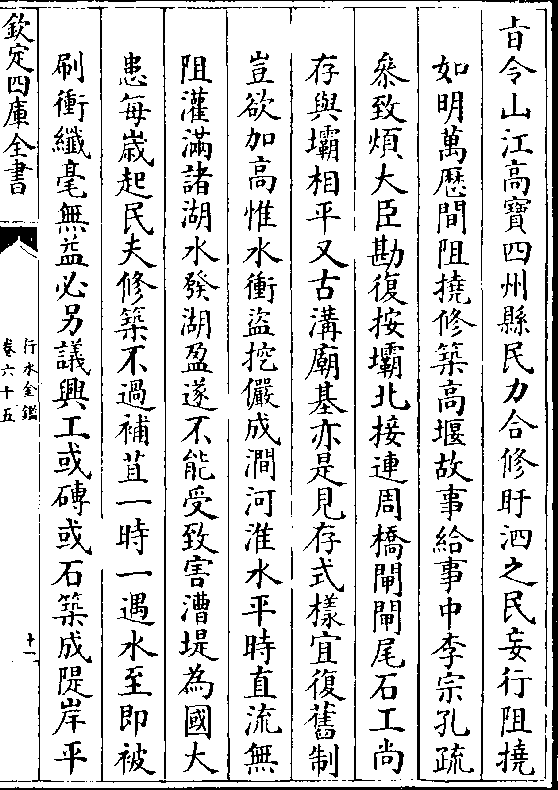 旨令山江高寶四州縣民力合修盱泗之民妄行阻撓
如明萬歷間阻撓修築高堰故事給事中李宗孔疏
叅致煩大臣勘復按壩北接連周橋閘閘尾石工尚
存與壩相平又古溝廟基亦是見存式樣宜復舊制
豈欲加高惟水衝盜挖儼成澗河淮水平時直流無
阻灌滿諸湖水發湖盈遂不能受致害漕堤為國大
患每歲起民夫修築不過補苴一時一遇水至即被
刷衝纖毫無益必另議興工或磚或石築成隄岸平
欽定四庫全書
行水金鑑
卷六十五
十一